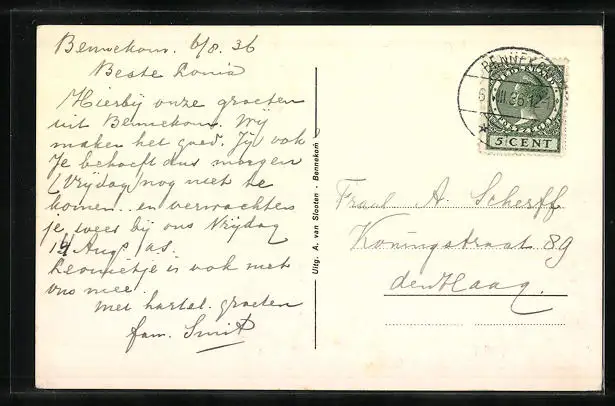 Bennekom. 6/8. 36
Beste Lonia
Hierbij onze groeten
uit Bennekom. Wij
maken het goed. Jij ook?
Je behoeft dus morgen
(Vrijdag) nog niet te
komen en verwachten
je weer bij ons Vrijdag
14 Aug. a.s.
Leonietje is ook met
ons mee.
Met hartel. groeten
fam. Smit
Uitg. A. van Slooten - Bennekom
BENNEKOM
6 VIII.36.12-1
NEDERLAND
5 CENT
A. Scherff
Koningstraat 89
den Haag.